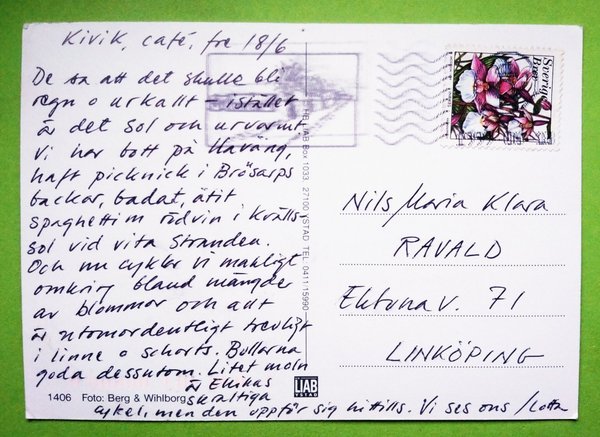 Kivik, café, fre 18/6
De sa att det skulle bli
regn o urkallt – istället
är det sol och urvarmt
Vi har bott på Haväng,
haft picknick i Brösarps
backar, badat, ätit
spaghetti m rödvin i kvälls-
sol vid vita stranden.
Och nu cyklar vi makligt
omkring bland mängder
av blommor och allt
är utomordentligt trevligt
i linne o shorts. Bullarna
goda dessutom. Litet moln
är Ehikas
skraltiga
cykel, men den uppför sig hittills. Vi ses ons / Lotta
1406 Foto: Berg & Wihlborg
LIAB
YSTAD
TEL LIAB Box 1033 27100 YSTAD TEL 0411-15990
Sverige
Brev
Nils/Maria/Klara
RAVALD
Ektunav. 71
LINKÖPING